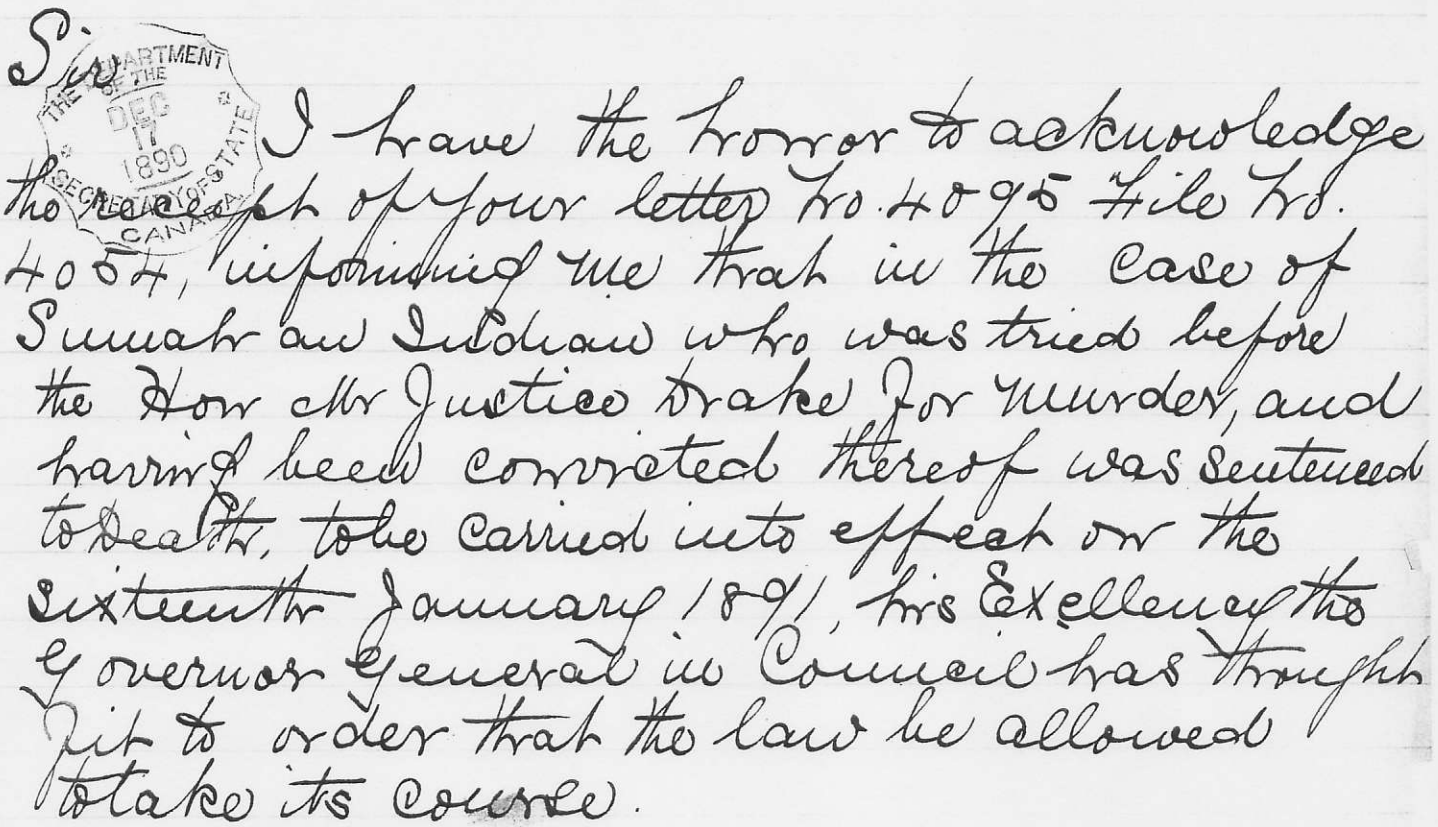 Sir
THE DEPARTMENT OF THE SECRETARY OF STATE CANADA
DEC
17
1890
I have the honor to acknowledge
the receipt of your letter No. 4095 File No.
4054, informing me that in the case of
Sumah an Indian who was tried before
the Hon Mr Justice Drake for Murder, and
having been convicted thereof was sentenced
to Death, to be carried into effect on the
sixteenth January 1891, his Excellency the
Governor General in Council has thought
fit to order that the law be allowed
to take its course.